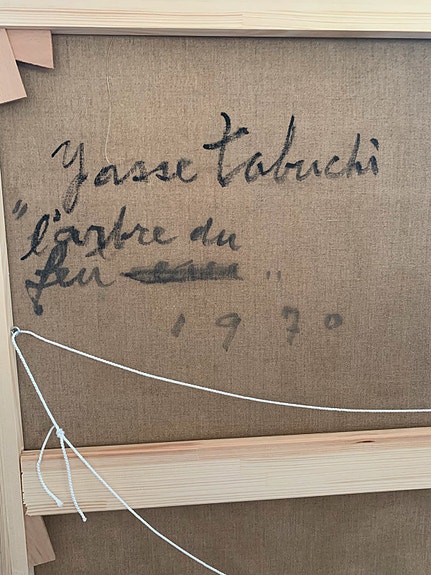 Yasse Tabuchi
"l'arbre du
feu "
1970